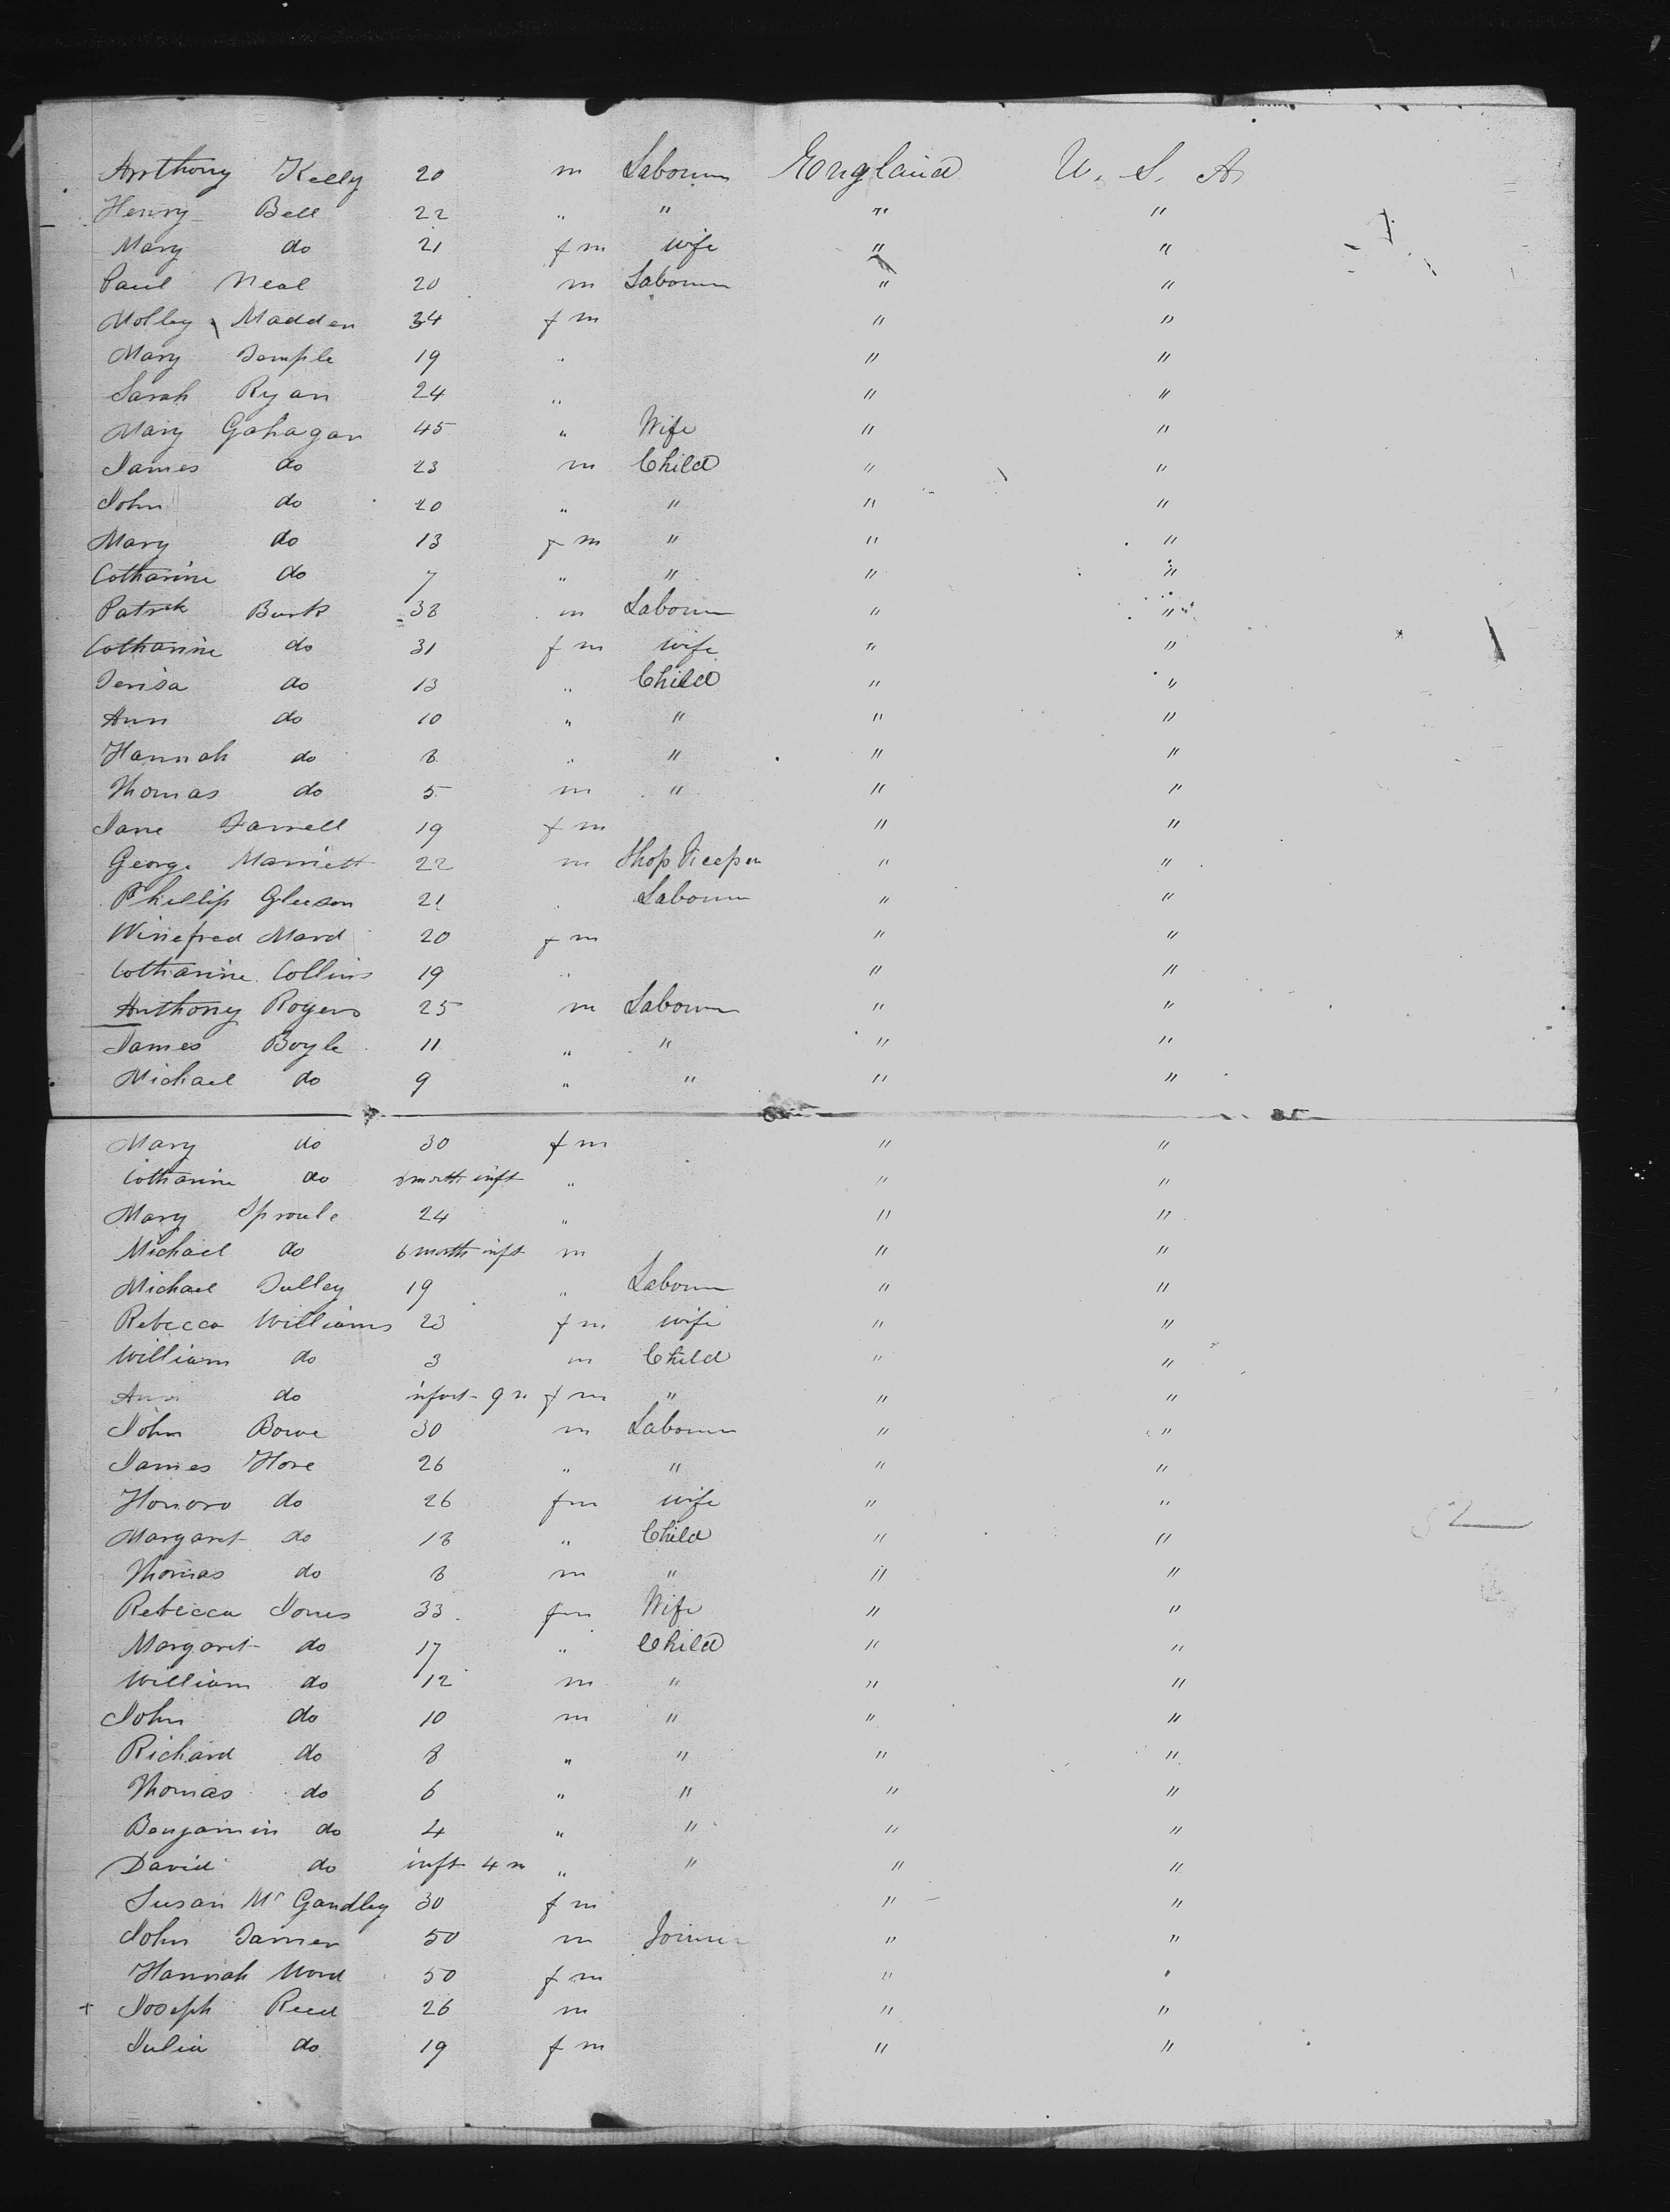 Anthony Kelly 20 m Labourer England U. S. A.
Henry Bell 22 " " " "
Mary do 21 fm wife " "
Paul Neal 20 m Labourer " "
Molley Madden 34 fm " "
Mary Temple 19 " " "
Sarah Ryan 24 " " "
Mary Gahagan 45 " Wife " "
James do 23 m Child " "
John do 20 " " " "
Mary do 13 fm " " "
Catharine do 7 " " " "
Patrk Burk 38 m Labourer " "
Catharine do 31 fm wife " "
Terisa do 13 " Child " "
Ann do 10 " " " "
Hannah do 8 " " " "
Thomas do 5 m " " "
Jane Farrell 19 fm " "
George Marriett 22 m Shop Keeper " "
Phillip Gleeson 21 Labourer " "
Winefred Ward 20 fm " "
Catharine Collins 19 " " "
Anthony Rogers 25 m Labourer " "
James Boyle 11 " " " "
Michael do 9 " " " "
Mary do 30 fm " "
Catharine do month inft " " "
Mary Sproule 24 " " "
Michael do 6 month inft m " "
Michael Tulley 19 " Labourer " "
Rebecca Williams 23 fm wife " "
William do 3 m Child " "
Ann do infant 9 m fm " " "
John Bowe 30 m Labourer " "
James Hore 26 " " " "
Honora do 26 fm wife " "
Margaret do 18 " Child " "
Thomas do 8 m " " "
Rebecca Jones 33 fm Wife " "
Margaret do 17 " Child " "
William do 12 m " " "
John do 10 m " " "
Richard do 8 " " " "
Thomas do 6 " " " "
Benjamin do 4 " " " "
David do inft 4 m " " " "
Susan Mc Gandley 30 fm " "
John Tarner 50 m Joiner " "
Hannah Ward 50 fm " "
+ Joseph Reed 26 m " "
Julia do 19 fm " "